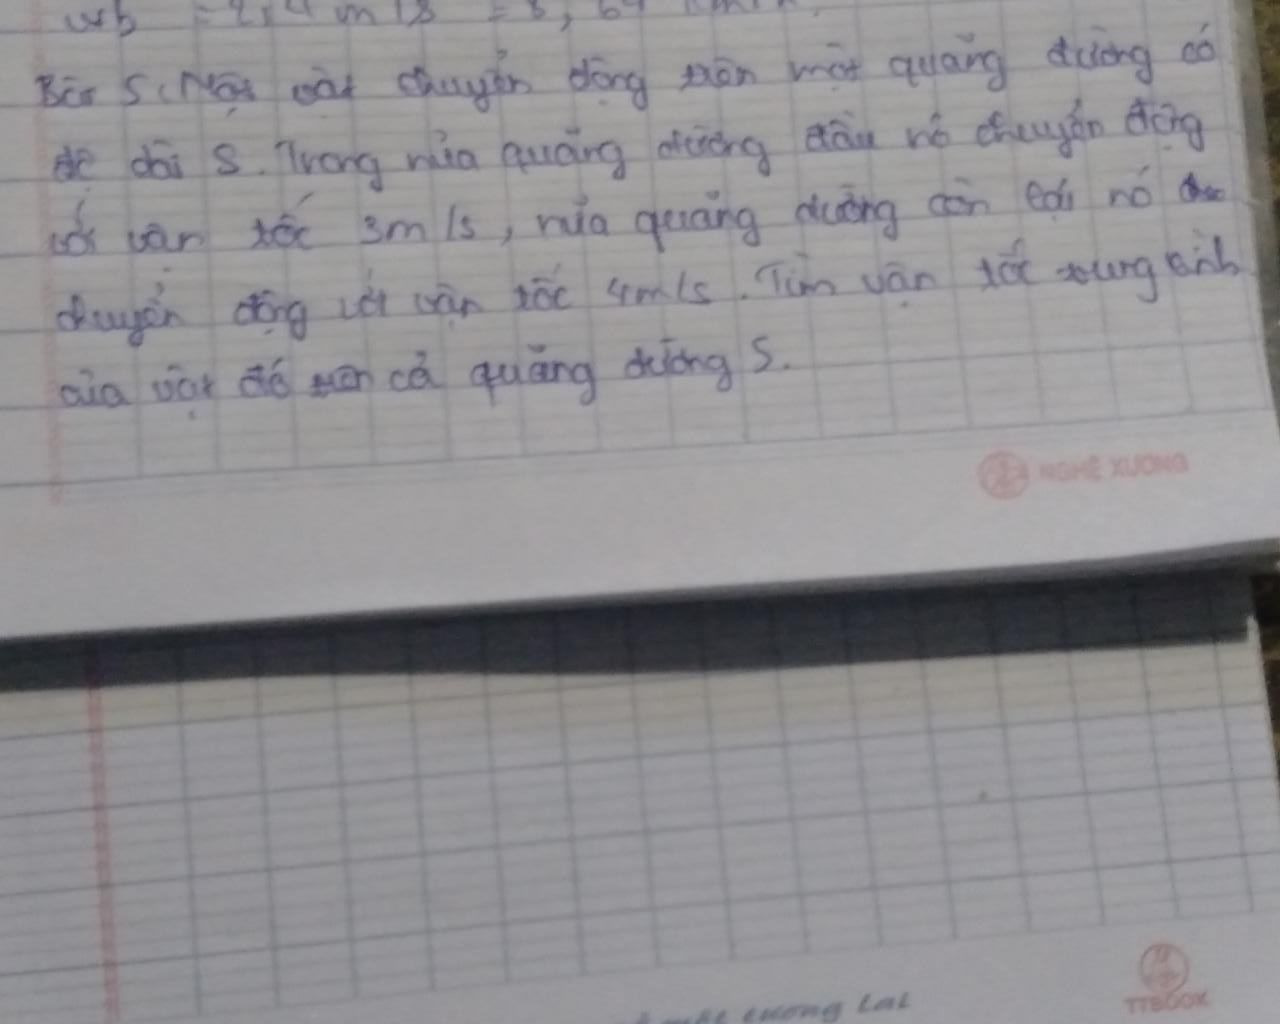 vtb = 2,4 m/s = 8,64 km/h.
Bài 5. Một vật chuyển động trên một quãng đường có
độ dài S. Trong nửa quãng đường đầu nó chuyển động
với vận tốc 3m/s, nửa quãng đường còn lại nó
chuyển động với vận tốc 4m/s. Tìm vận tốc trung bình
của vật đó trên cả quãng đường S.
NGHỆ XƯƠNG
tương lai
TTBOOK